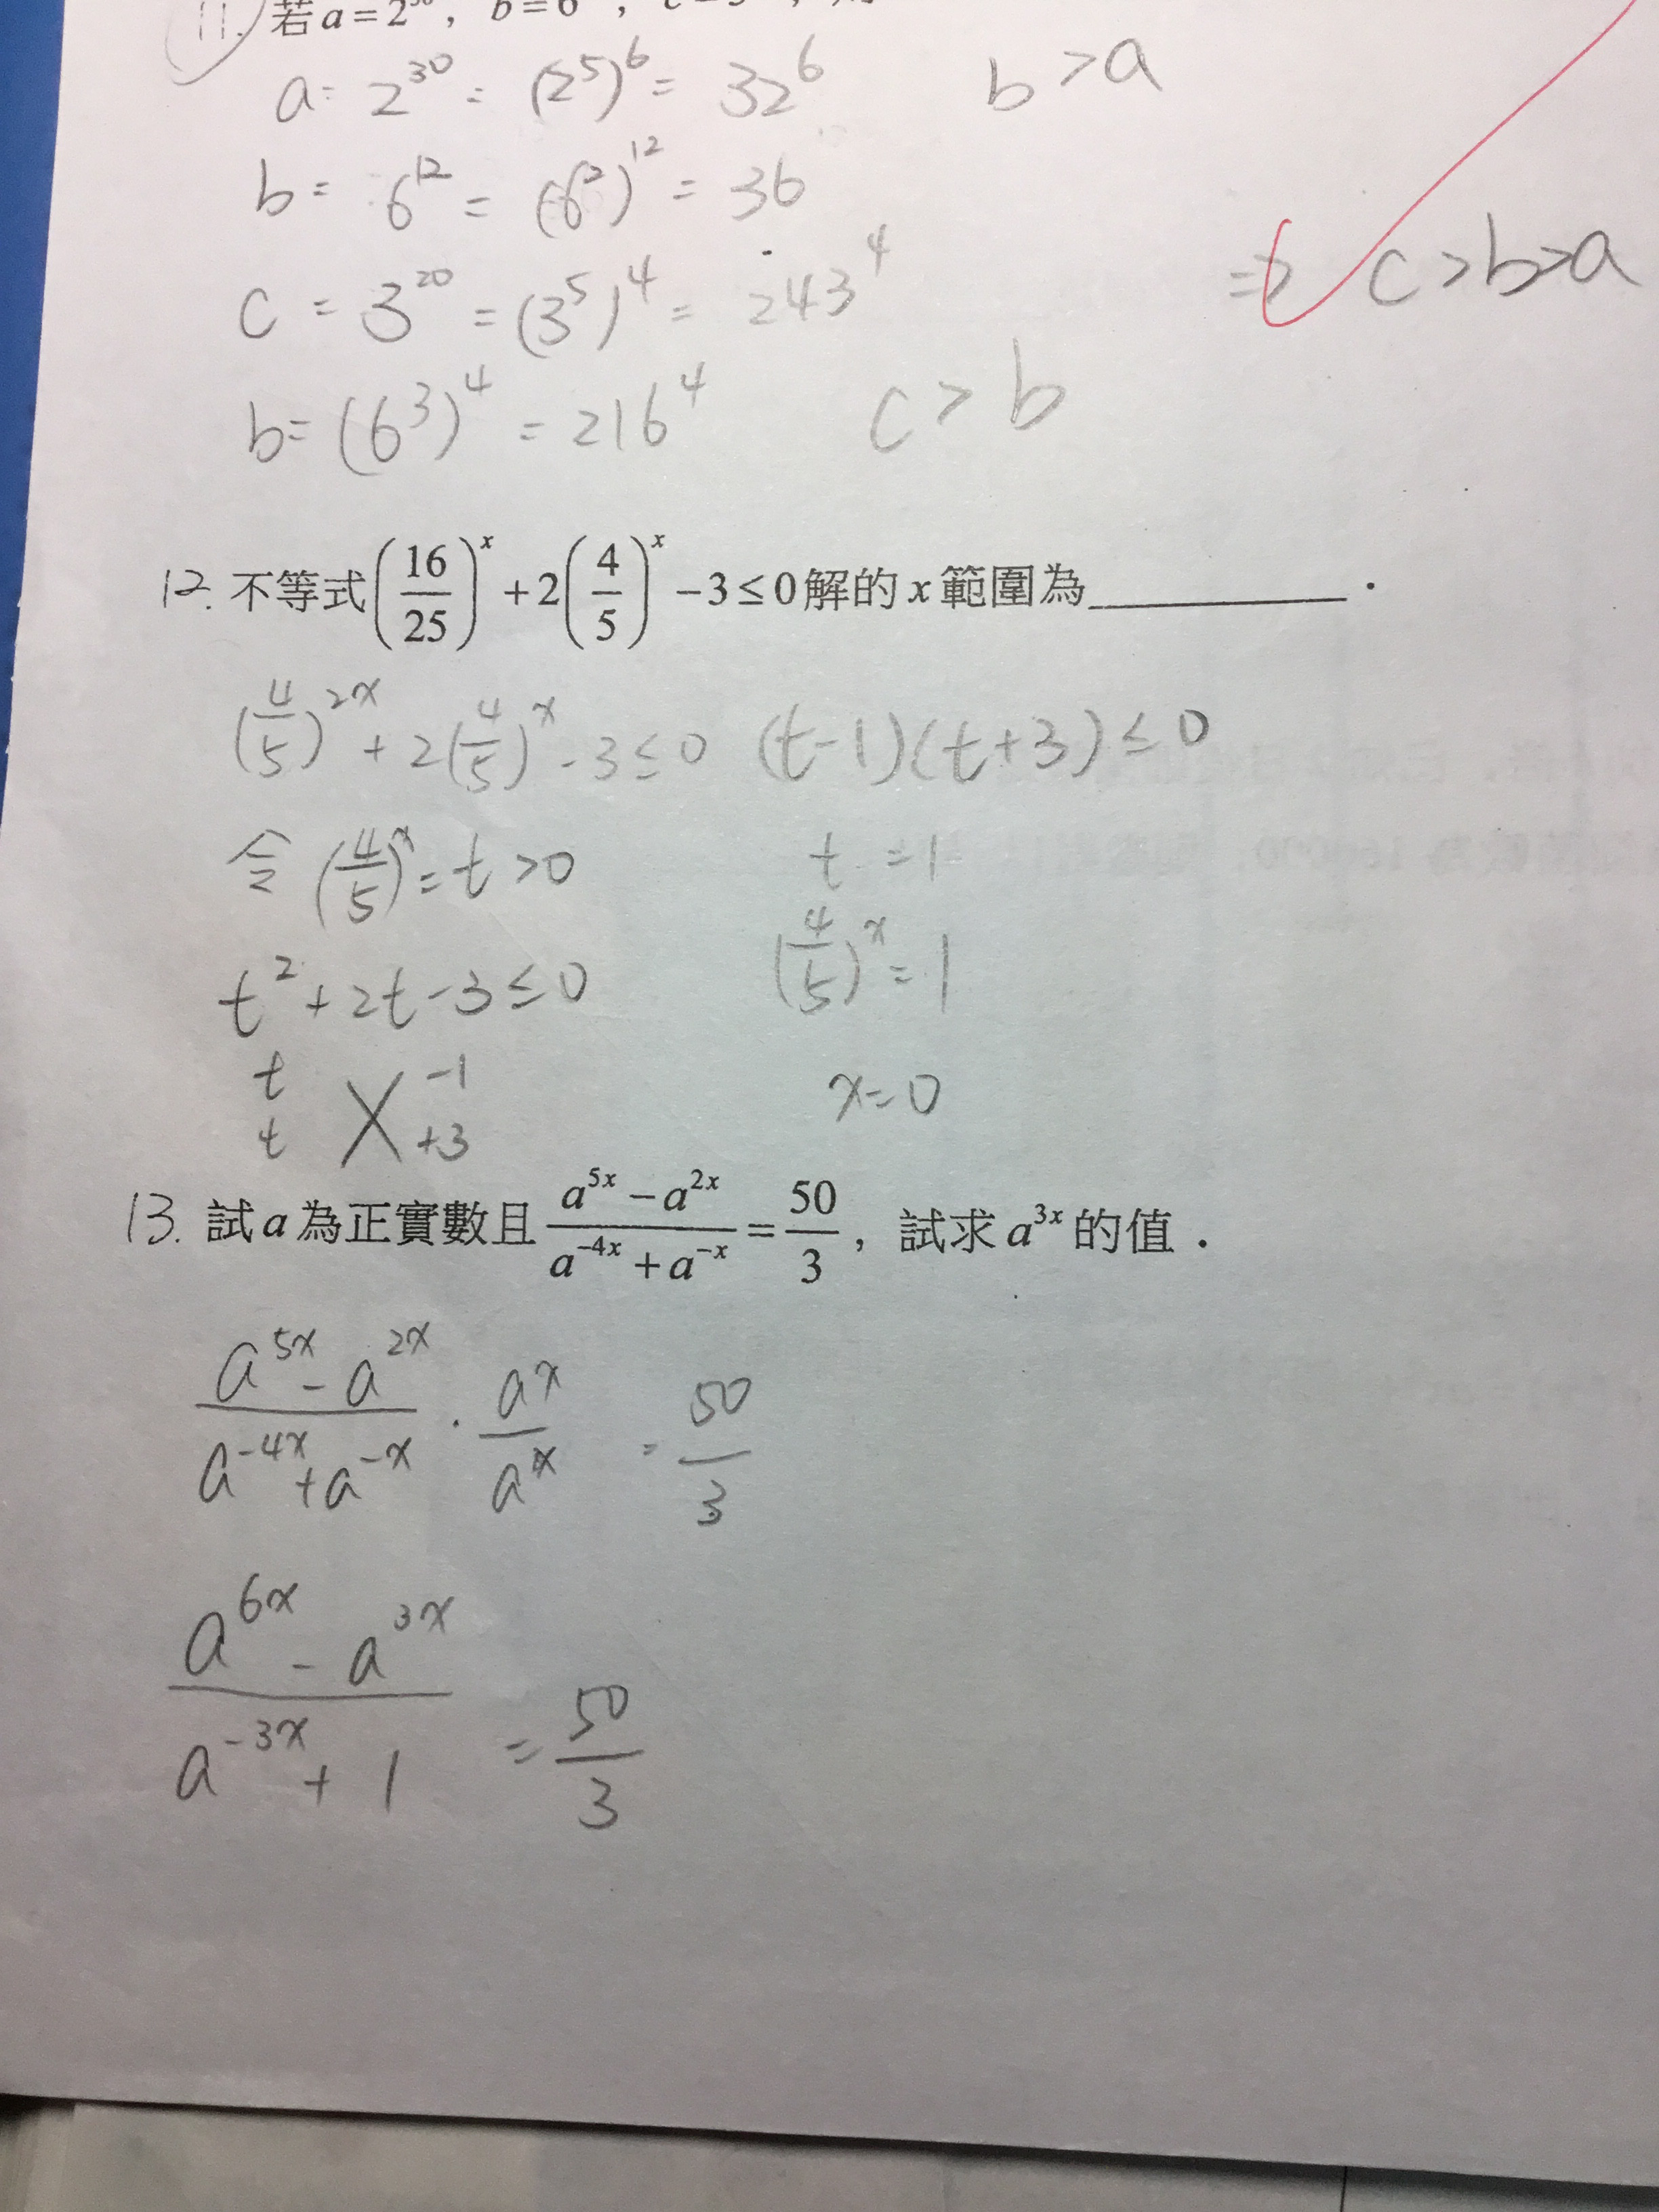 11. 若 a = 2³⁰, b = 6 , c = 3 ,
a = 2³⁰ = (2⁵)⁶ = 32⁶ b > a
b = 6¹² = (6²)¹² = 36
c = 3²⁰ = (3⁵)⁴ = 243⁴ ⇒ c > b > a
b = (6³)⁴ = 216⁴ c > b
12. 不等式 (16/25)ˣ + 2(4/5)ˣ − 3 ≤ 0 解的 x 範圍為____________.
(4/5)²ˣ + 2(4/5)ˣ − 3 ≤ 0 (t−1)(t+3) ≤ 0
令 (4/5)ˣ = t > 0 t = 1
t² + 2t − 3 ≤ 0 (4/5)ˣ = 1
t −1
t +3 x = 0
13. 試 a 為正實數且 (a⁵ˣ − a²ˣ)/(a⁻⁴ˣ + a⁻ˣ) = 50/3, 試求 a³ˣ 的值.
(a⁵ˣ − a²ˣ)/(a⁻⁴ˣ + a⁻ˣ) · aˣ/aˣ = 50/3
(a⁶ˣ − a³ˣ)/(a⁻³ˣ + 1) = 50/3